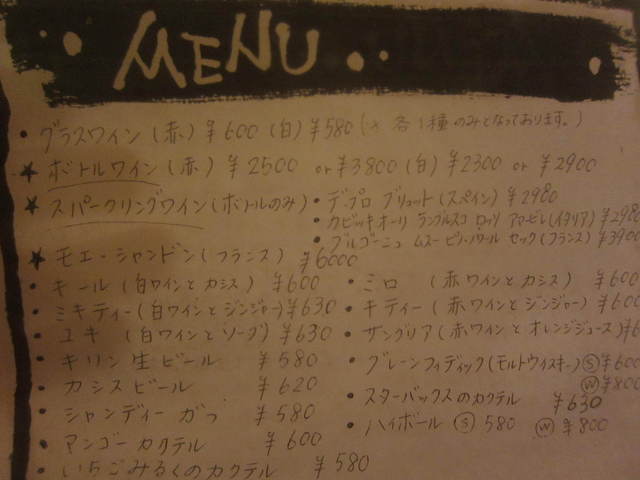 MENU
・グラスワイン(赤)¥600 (白)¥580(※ 各1種のみとなっております。)
★ボトルワイン(赤) ¥2500 or ¥3800 (白)¥2300 or ¥2900
★スパークリングワイン(ボトルのみ)・デ・プロ ブリュット(スペイン) ¥2980
・カビッキオーリ ランブルスコ ロッソ アマービレ(イタリア)¥2980
・ブルゴーニュ ムスー ピノ・ノワール セック(フランス)¥3900
★モエ・シャンドン(フランス) ¥6000
・キール(白ワインとカシス) ¥600
・ミロ (赤ワインとカシス) ¥600
・ミキティー(白ワインとジンジャー)¥630
・キティー(赤ワインとジンジャー)¥600
・ユキ (白ワインとソーダ)¥630
・サングリア(赤ワインとオレンジジュース)¥6
・キリン生ビール ¥580
・グレーンフィディック(モルトウイスキー)Ⓢ¥600
Ⓦ¥800
・カシスビール ¥620
・スターバックスのカクテル ¥630
・シャンディーガフ ¥580
・ハイボール Ⓢ 580 Ⓦ ¥800
・マンゴーカクテル ¥600
・いちごみるくのカクテル ¥580